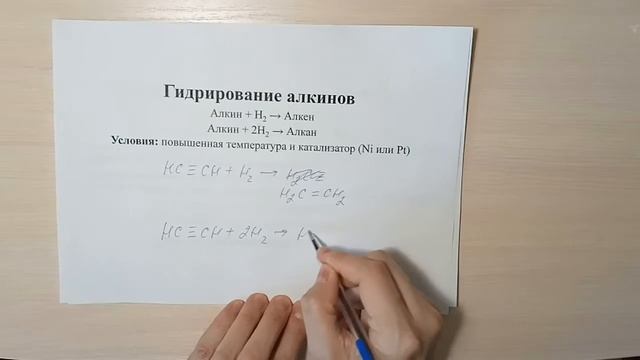 Гидрирование алкинов
Алкин + H₂ → Алкен
Алкин + 2H₂ → Алкан
Условия: повышенная температура и катализатор (Ni или Pt)
HC≡CH + H₂ →
H₂C=CH₂
HC≡CH + 2H₂ → H